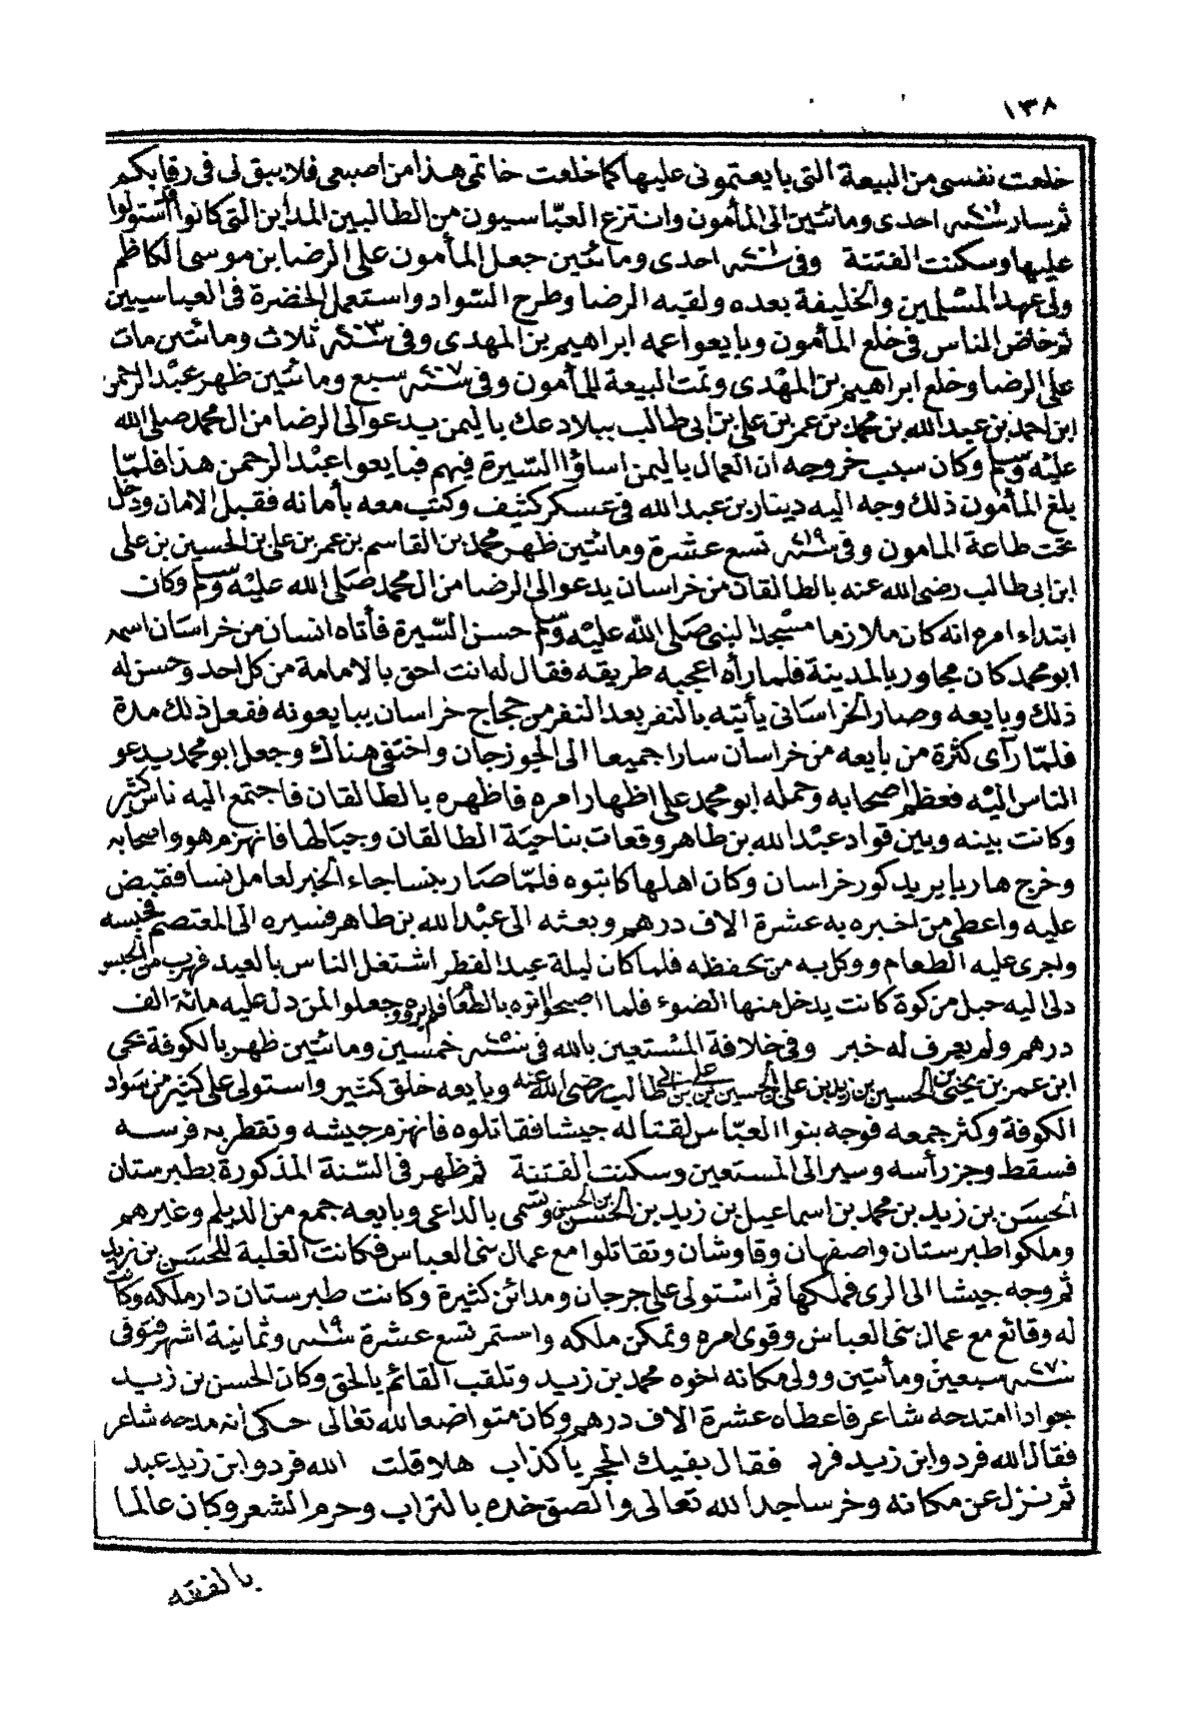 ١٣٨
خلعت نفسى من البيعة التى بايعتمونى عليها كما خلعت خاتمى هذا من اصبعى فلا يبق لى فى رقابكم
ثم سار سنة ٢٠١ احدى ومائتين الى المأمون وانتزع العباسيون من الطالبيين المداين التى كانوا استولوا
عليها وسكنت الفتنة وفى سنة ٢٠١ احدى ومائتين جعل المأمون على الرضا بن موسى الكاظم
ولى عهد المسلمين والخليفة بعده ولقبه الرضا وطرح السواد واستعمل الخضرة فى العباسيين
ثم خاض الناس فى خلع المأمون وبايعوا عمه ابراهيم بن المهدى وفى سنة ٢٠٣ ثلاث ومائتين مات
على الرضا وخلع ابراهيم بن المهدى وتمت البيعة للمأمون وفى سنة ٢٠٧ سبع ومائتين ظهر عبد الرحمن
ابن احمد بن عبد الله بن محمد بن عمر بن على بن ابى طالب ببلاد عك باليمن يدعو الى الرضا من ال محمد صلى الله
عليه وسلم وكان سبب خروجه ان العمال باليمن اساؤا السيرة فيهم فبايعوا عبد الرحمن هذا فلما
بلغ المأمون ذلك وجه اليه دينار بن عبد الله فى عسكر كثيف وكتب معه بأمانه فقبل الامان ودخل
تحت طاعة المامون وفى سنة ٢١٩ تسع عشرة ومائتين ظهر محمد بن القاسم بن عمر بن على بن الحسين بن على
ابن ابى طالب رضى الله عنه بالطالقان من خراسان يدعو الى الرضا من ال محمد صلى الله عليه وسلم وكان
ابتداء امره انه كان ملازما مسجد النبى صلى الله عليه وسلم حسن السيرة فأتاه انسان من خراسان اسمه
ابو محمد كان مجاور بالمدينة فلما رأه اعجبه طريقه فقال له انت احق بالامامة من كل احد وحسن له
ذلك وبايعه وصار الخراسانى يأتيه بالنفر بعد النفر من حجاج خراسان يبايعونه ففعل ذلك مدة
فلما رأى كثرة من بايعه من خراسان سارا جميعا الى الجوزجان واختفى هناك وجعل ابو محمد يدعو
الناس اليه فعظم اصحابه وحمله ابو محمد على اظهار امره فاظهره بالطالقان فاجتمع اليه ناس كثير
وكانت بينه وبين قواد عبد الله بن طاهر وقعات بناحية الطالقان وجبالها فانهزم هو واصحابه
وخرج هاربا يريد كور خراسان وكان اهلها كاتبوه فلما صار بنسا جاء الخبر لعامل نسا فقبض
عليه واعطى من اخبره به عشرة الاف درهم وبعثه الى عبد الله بن طاهر فسيره الى المعتصم فحبسه
واجرى عليه الطعام ووكل به من يحفظه فلما كان ليلة عيد الفطر اشتغل الناس بالعيد فهرب من الحبس
دلى اليه حبل من كوة كانت يدخل منها الضوء فلما اصبحوا اتوه بالطعام فلم يروه وجعلوا لمن دل عليه مائة الف
درهم ولم يعرف له خبر وفى خلافة المستعين بالله فى سنة ٢٥٠ خمسين ومائتين ظهر بالكوفة يحيى
ابن عمر بن يحيى بن الحسين بن زيد بن على بن الحسين بن على بن ابى طالب رضى الله عنه وبايعه خلق كثير واستولى على كثير من سواد
الكوفة وكثر جمعه فوجه بنوا العباس لقتاله جيشا فقاتلوه فانهزم جيشه وتقطر به فرسه
فسقط وجز رأسه وسير الى المستعين وسكنت الفتنة ثم ظهر فى السنة المذكورة بطبرستان
الحسن بن زيد بن محمد بن اسماعيل بن زيد بن الحسن بن الحسن وتسمى بالداعى وبايعه جمع من الديلم وغيرهم
وملكوا طبرستان واصفهان وقاوشان وتقاتلوا مع عمال بنى العباس فكانت الغلبة للحسن بن زيد
ثم وجه جيشا الى الرى فملكها ثم استولى على جرجان ومدائن كثيرة وكانت طبرستان دار ملكه وكانت
له وقائع مع عمال بنى العباس وقوى امره وتمكن ملكه واستمر تسع عشرة سنة ١٩ وثمانية اشهر فتوفى
سنة ٢٧٠ سبعين ومأتين وولى مكانه اخوه محمد بن زيد وتلقب القائم بالحق وكان الحسن بن زيد
جوادا امتدحه شاعر فاعطاه عشرة الاف درهم وكان متواضعا لله تعالى حكى انه مدحه شاعر
فقال الله فرد وابن زيد فرد فقال بفيك الحجر يا كذاب هلا قلت الله فرد وابن زيد عبد
ثم نزل عن مكانه وخر ساجدا لله تعالى والصق خده بالتراب وحرم الشعر وكان عالما
بالفقه